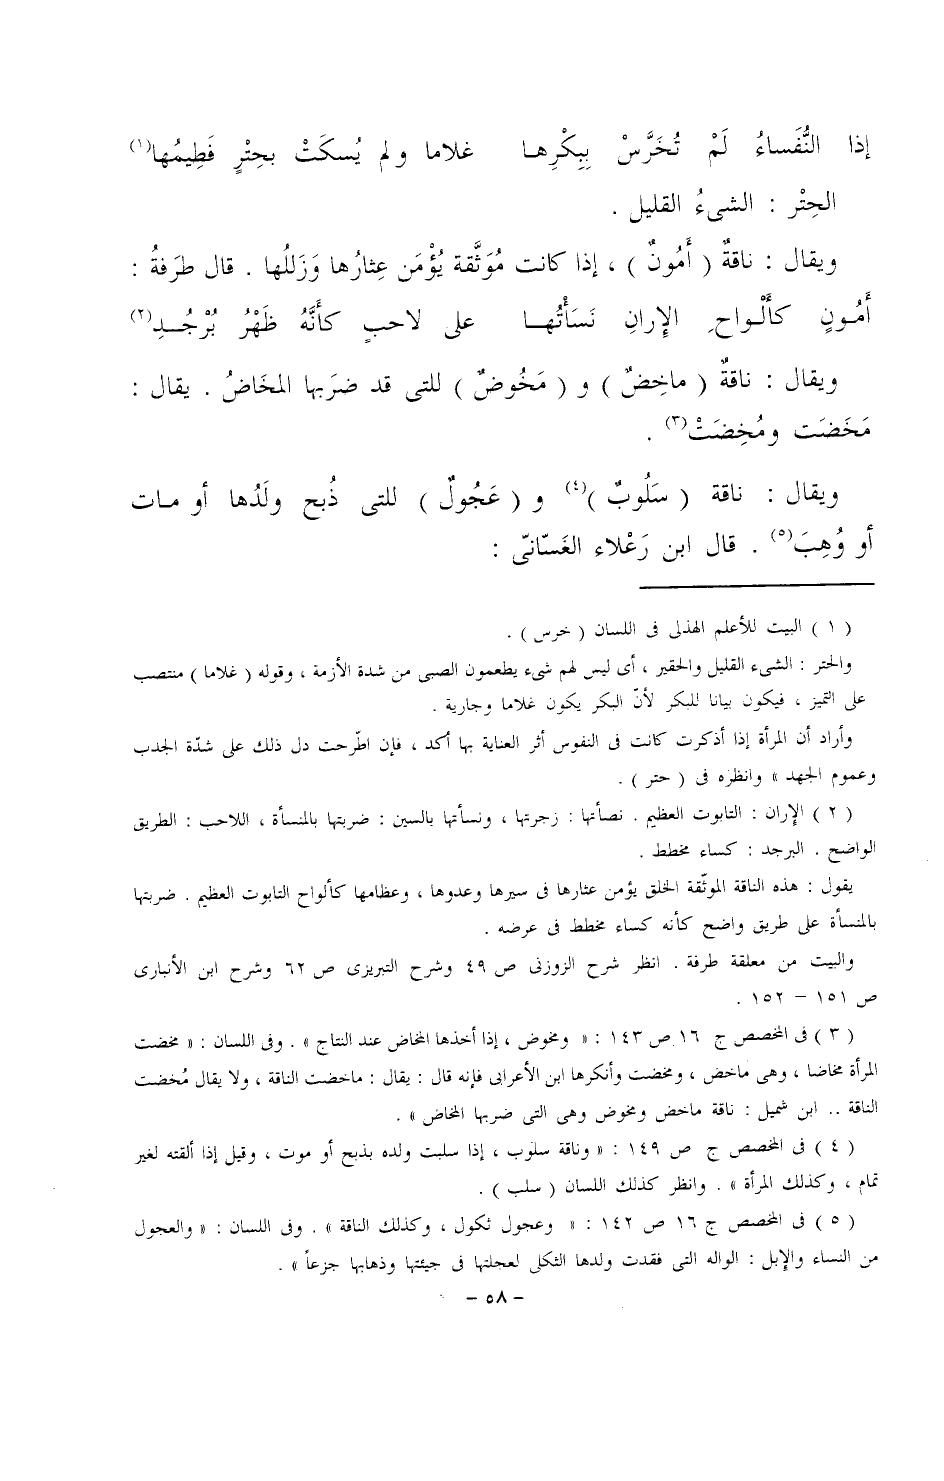 إذا النُّفَساءُ لَمْ تُخَرَّسْ بِبِكْرِهـا غلاما ولم يُسكَتْ بحِتْرٍ فَطِيمُها(١)
الحِتْر : الشىءُ القليل .
ويقال : ناقةٌ ( أَمُونٌ ) ، إذا كانت مُوَثَّقة يُؤْمَن عِثارُها وَزَللُها . قال طرَفةُ :
أَمُـونٍ كأَلْـواحِ الإرانِ نَسَأْتُهـا على لاحبٍ كأَنَّهُ ظَهْرُ بُرْجُـدِ(٢)
ويقال : ناقةٌ ( ماخِضٌ ) و ( مَخُوضٌ ) للتى قد ضرَبها المخَاضُ . يقال :
مَخَضَت ومُخِضَتْ(٣) .
ويقال : ناقة ( سَلُوبٌ )(٤) و ( عَجُولٌ ) للتى ذُبح ولَدُها أو مـات
أو وُهِبَ(٥) . قال ابن رَعْلاء الغَسّانىّ :
( ١ ) البيت للأعلم الهذلى فى اللسان ( خرس ) .
والحتر : الشىء القليل والحقير ، أى ليس لهم شىء يطعمون الصبى من شدة الأزمة ، وقوله ( غلاما ) منتصب
على التميز ، فيكون بيانا للبكر لأنّ البكر يكون غلاما وجارية .
وأراد أن المرأة إذا أذكرت كانت فى النفوس أثر العناية بها أكد ، فإن اطّرحت دل ذلك على شدّة الجدب
وعموم الجهد » وانظره فى ( حتر ) .
( ٢ ) الإران : التابوت العظيم . نصأتها : زجرتها ، ونسأتها بالسين : ضربتها بالمنسأة ، اللاحب : الطريق
الواضح . البرجد : كساء مخطط .
يقول : هذه الناقة الموثّقة الخلق يؤمن عثارها فى سيرها وعدوها ، وعظامها كألواح التابوت العظيم . ضربتها
بالمنسأة على طريق واضح كأنه كساء مخطط فى عرضه .
والبيت من معلقة طرفة . انظر شرح الزوزنى ص ٤٩ وشرح التبريزى ص ٦٢ وشرح ابن الأنبارى
ص ١٥١ – ١٥٢ .
( ٣ ) فى المخصص ج ١٦ ص ١٤٣ : « ومخوض ، إذا أخذها المخاض عند النتاج » . وفى اللسان : « مخضت
المرأة مخاضا ، وهى ماخض ، ومخضت وأنكرها ابن الأعرابى فإنه قال : يقال : ماخضت الناقة ، ولا يقال مُخضت
الناقة .. ابن شميل : ناقة ماخض ومخوض وهى التى ضربها المخاض » .
( ٤ ) فى المخصص ج ص ١٤٩ : « وناقة سلوب ، إذا سلبت ولده بذبح أو موت ، وقيل إذا ألقته لغير
تمام ، وكذلك المرأة » . وانظر كذلك اللسان ( سلب ) .
( ٥ ) فى المخصص ج ١٦ ص ١٤٢ : « وعجول ثكول ، وكذلك الناقة » . وفى اللسان : « والعجول
من النساء والإبل : الواله التى فقدت ولدها الثكلى لعجلتها فى جيئتها وذهابها جزعاً » .
– ٥٨ –